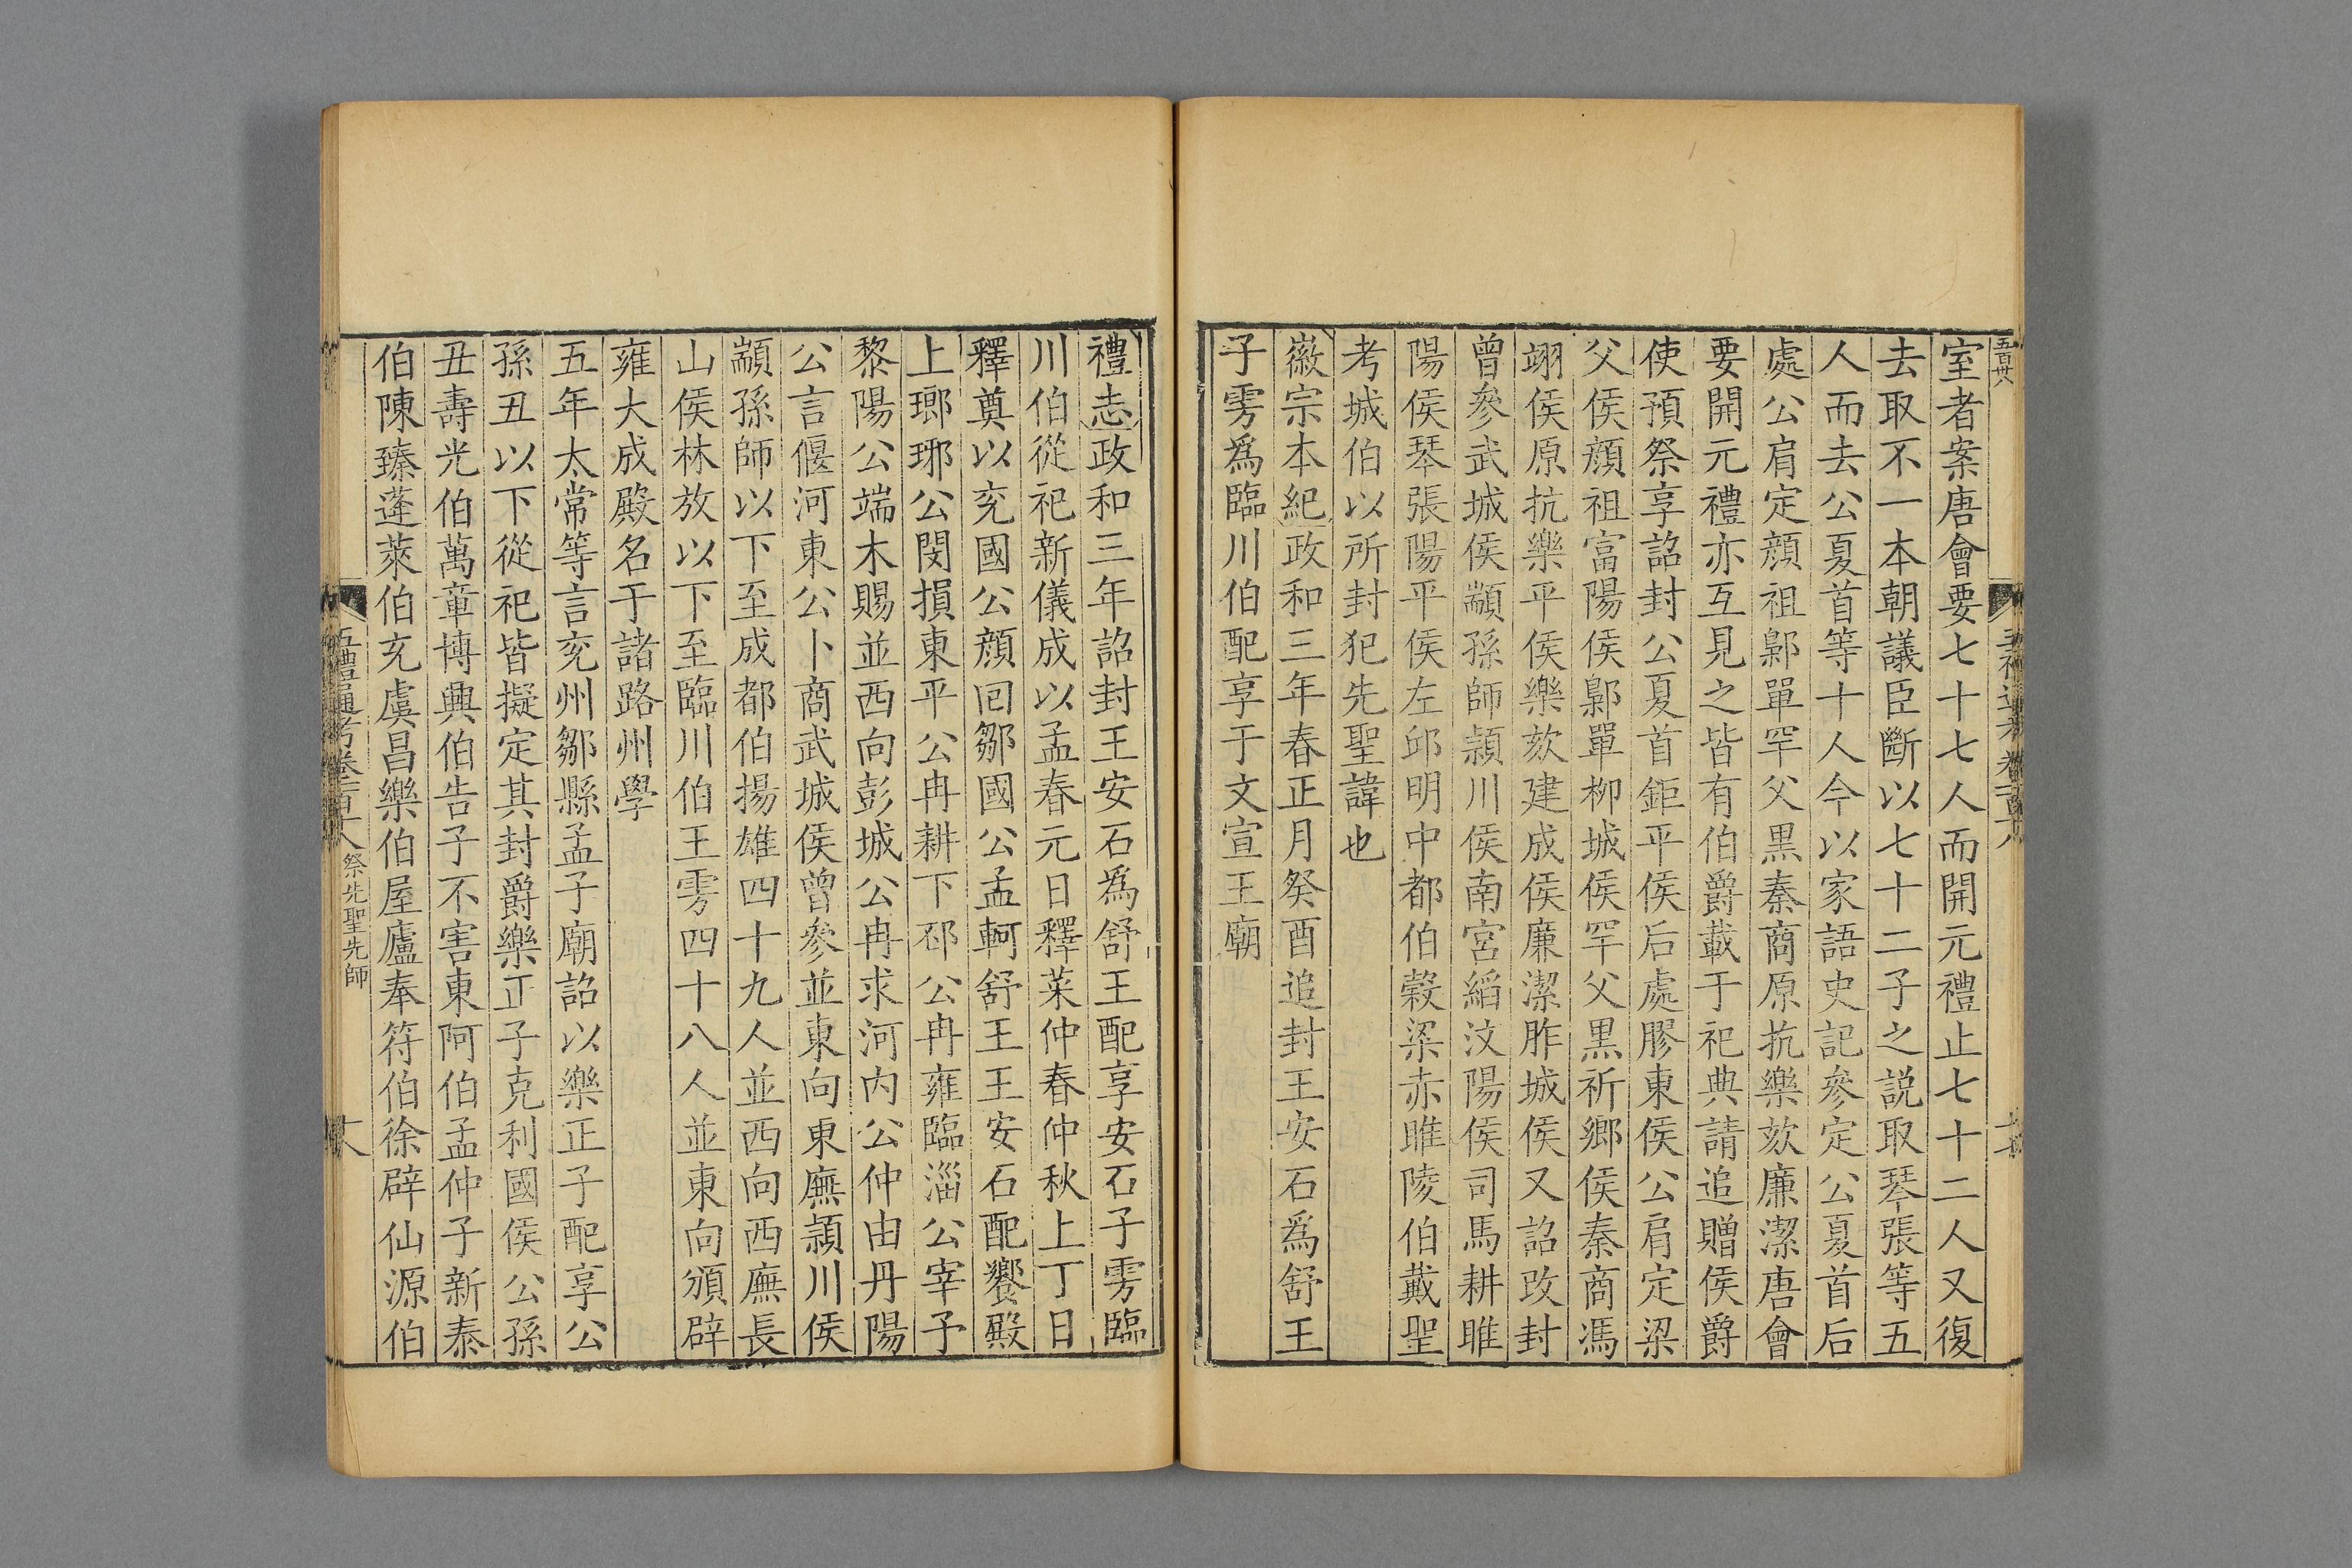 室者案唐會要七十七人而開元禮止七十二人又復
去取不一本朝議臣斷以七十二子之説取琴張等五
人而去公夏首等十人今以家語史記參定公夏首后
處公肩定顔祖鄡單罕父黒秦商原抗樂欬廉潔唐會
要開元禮亦互見之皆有伯爵載于祀典請追贈侯爵
使預祭享詔封公夏首鉅平侯后處膠東侯公肩定梁
父侯顔祖富陽侯鄡單柳城侯罕父黒祈鄉侯秦商馮
翊侯原抗樂平侯樂欬建成侯廉潔胙城侯又詔改封
曾參武城侯顓孫師潁川侯南宮縚汶陽侯司馬耕睢
陽侯琴張陽平侯左邱明中都伯穀梁赤睢陵伯戴聖
考城伯以所封犯先聖諱也
徽宗本紀政和三年春正月癸酉追封王安石爲舒王
子雱爲臨川伯配享于文宣王廟
禮志政和三年詔封王安石爲舒王配享安石子雱臨
川伯從祀新儀成以孟春元日釋菜仲春仲秋上丁日
釋奠以兖國公顔回鄒國公孟軻舒王王安石配饗殿
上瑯琊公閔損東平公冉耕下邳公冉雍臨淄公宰予
黎陽公端木賜並西向彭城公冉求河内公仲由丹陽
公言偃河東公卜商武城侯曾參並東向東廡潁川侯
顓孫師以下至成都伯揚雄四十九人並西向西廡長
山侯林放以下至臨川伯王雱四十八人並東向頒辟
雍大成殿名于諸路州學
五年太常等言兖州鄒縣孟子廟詔以樂正子配享公
孫丑以下從祀皆擬定其封爵樂正子克利國侯公孫
丑壽光伯萬章博興伯告子不害東阿伯孟仲子新泰
伯陳臻蓬萊伯充虞昌樂伯屋廬奉符伯徐辟仙源伯
五禮通考卷一百十八 祭先聖先師